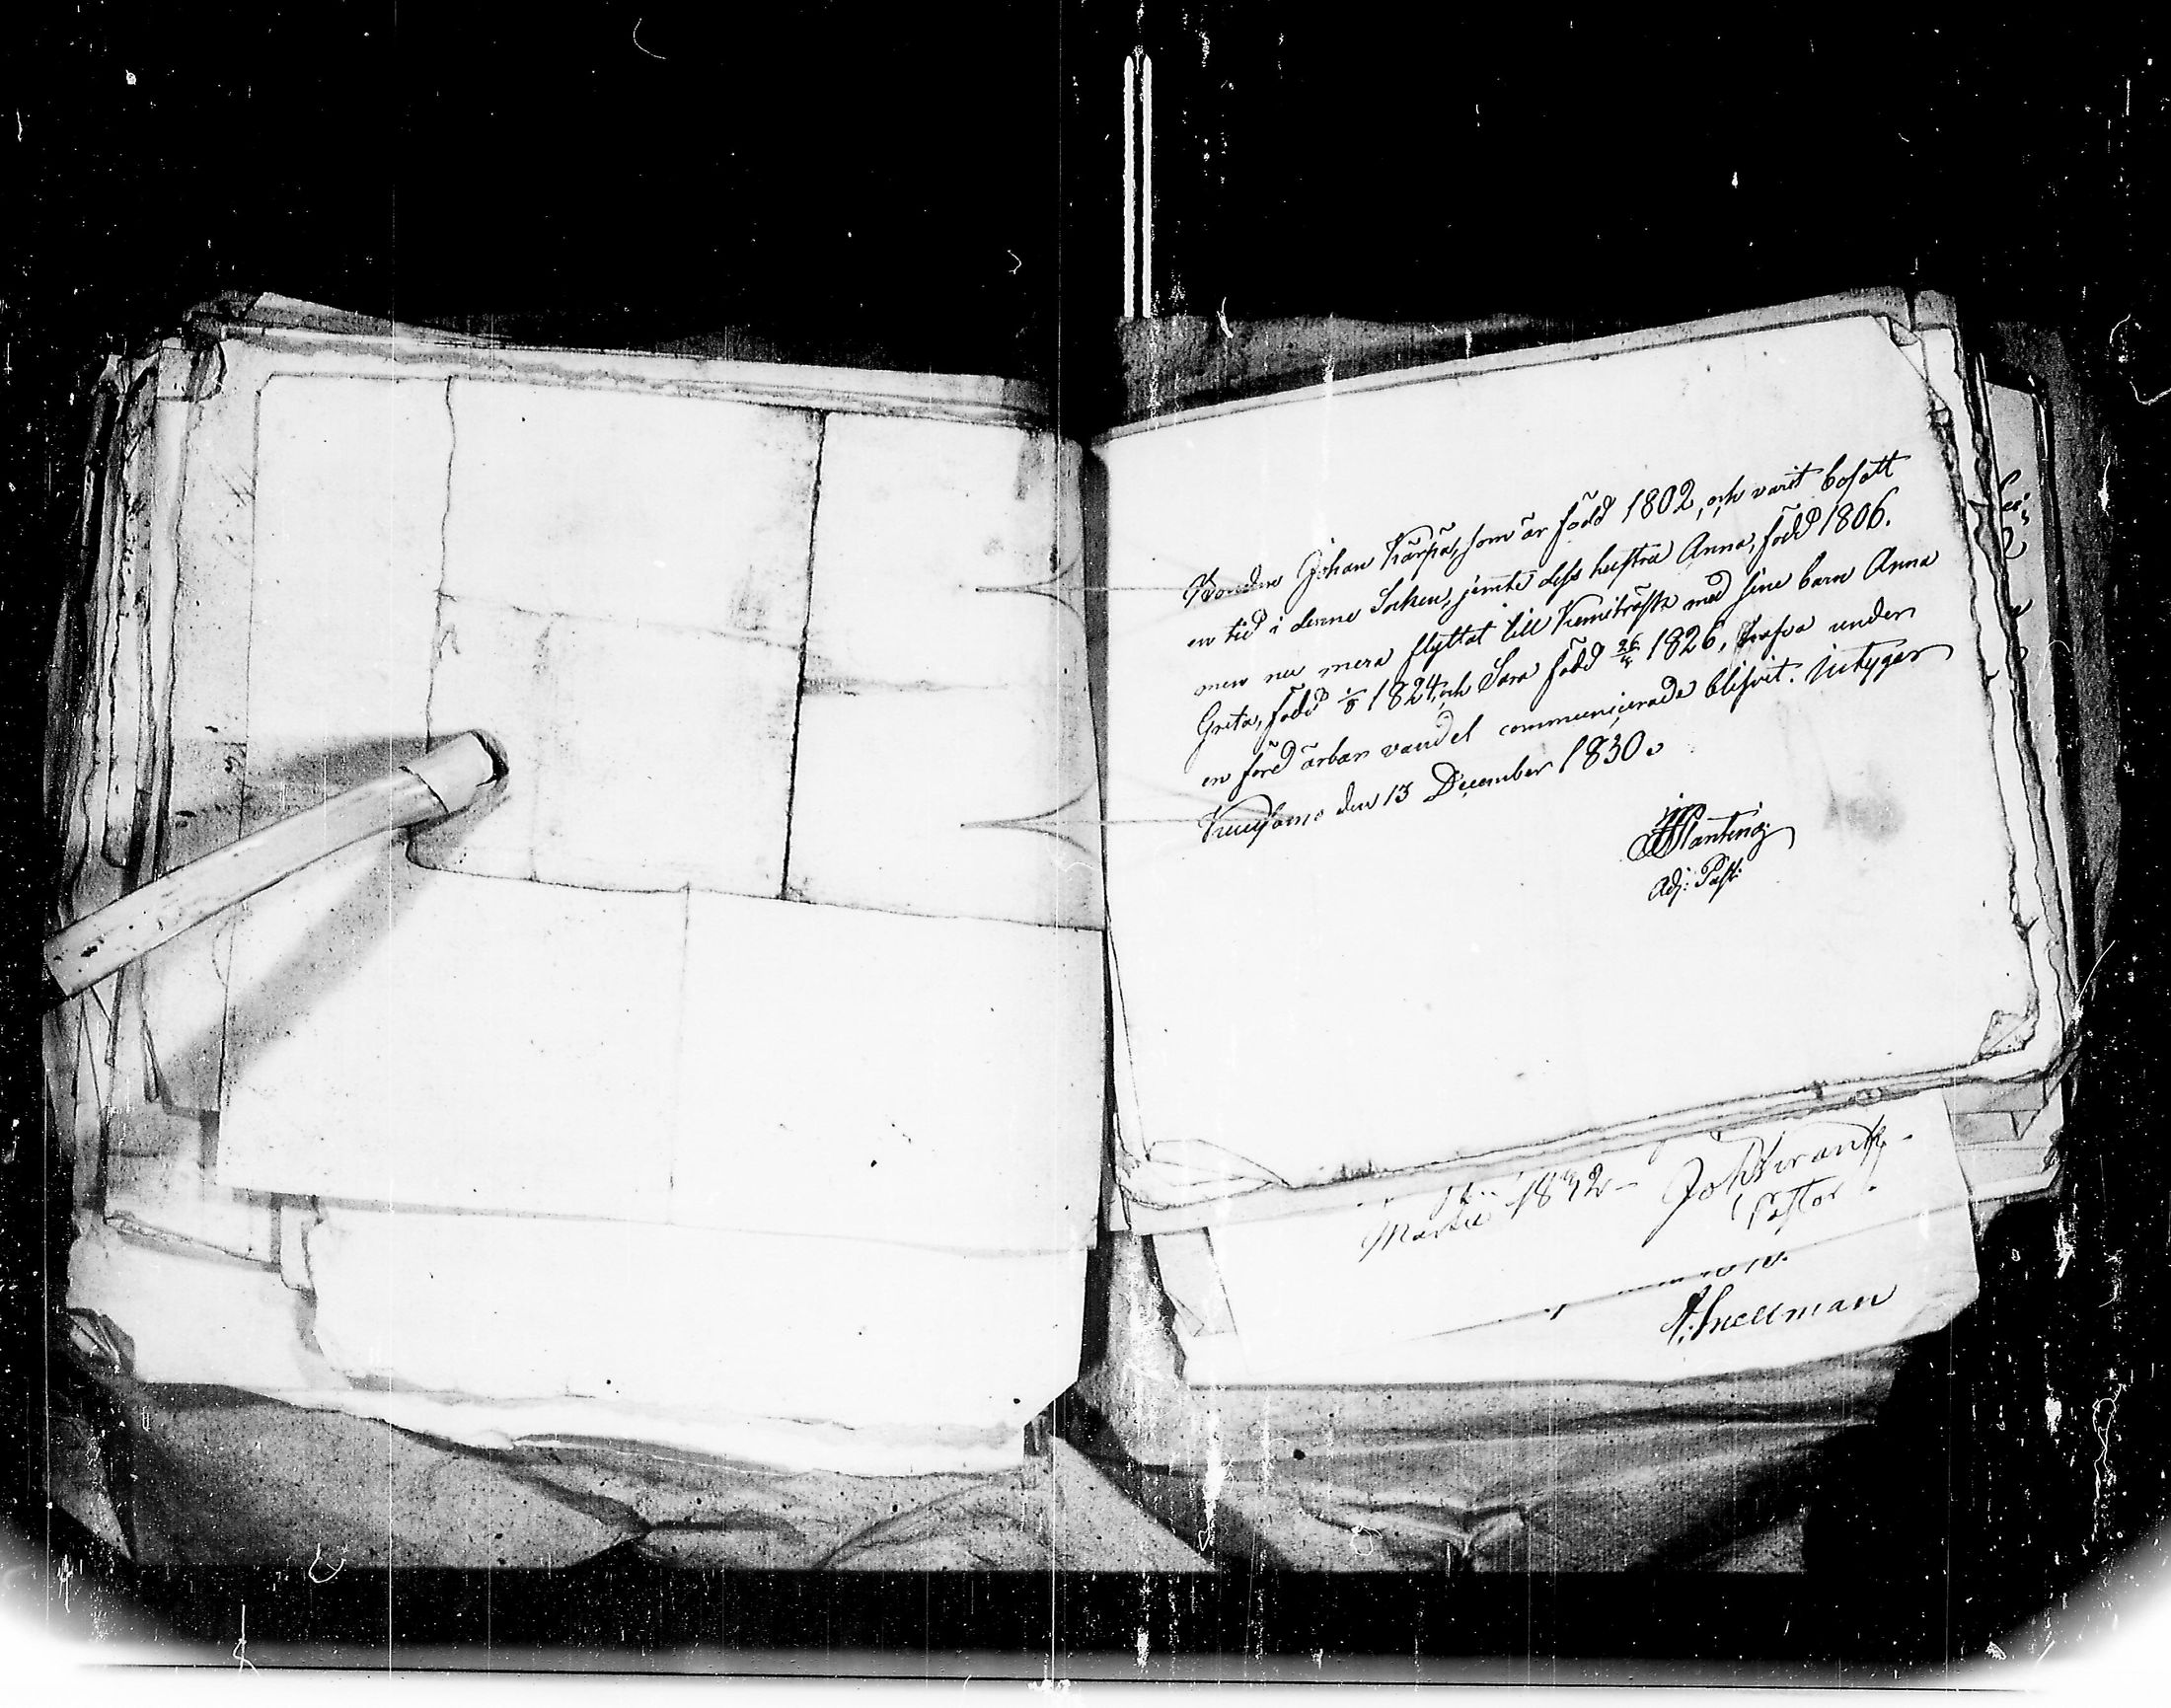 Bonden Johan Kärpä, som är född 1802, och varit bosatt
en tid i denna Socken, jemte dess hustru Anna, född 1806.
men nu mera flyttat till Kemiträsk med sine barn Anna
Greta, född 1/8 1824, och Sara född 26/4 1826, hafva under
en förd ärbar vandel communicerade blifvit. intygar
Kuusamo den 13 December 1830.
Planting
Adj: Past:
Martii 1832 - Joh Wirantz
Pastor.
A. Snellman